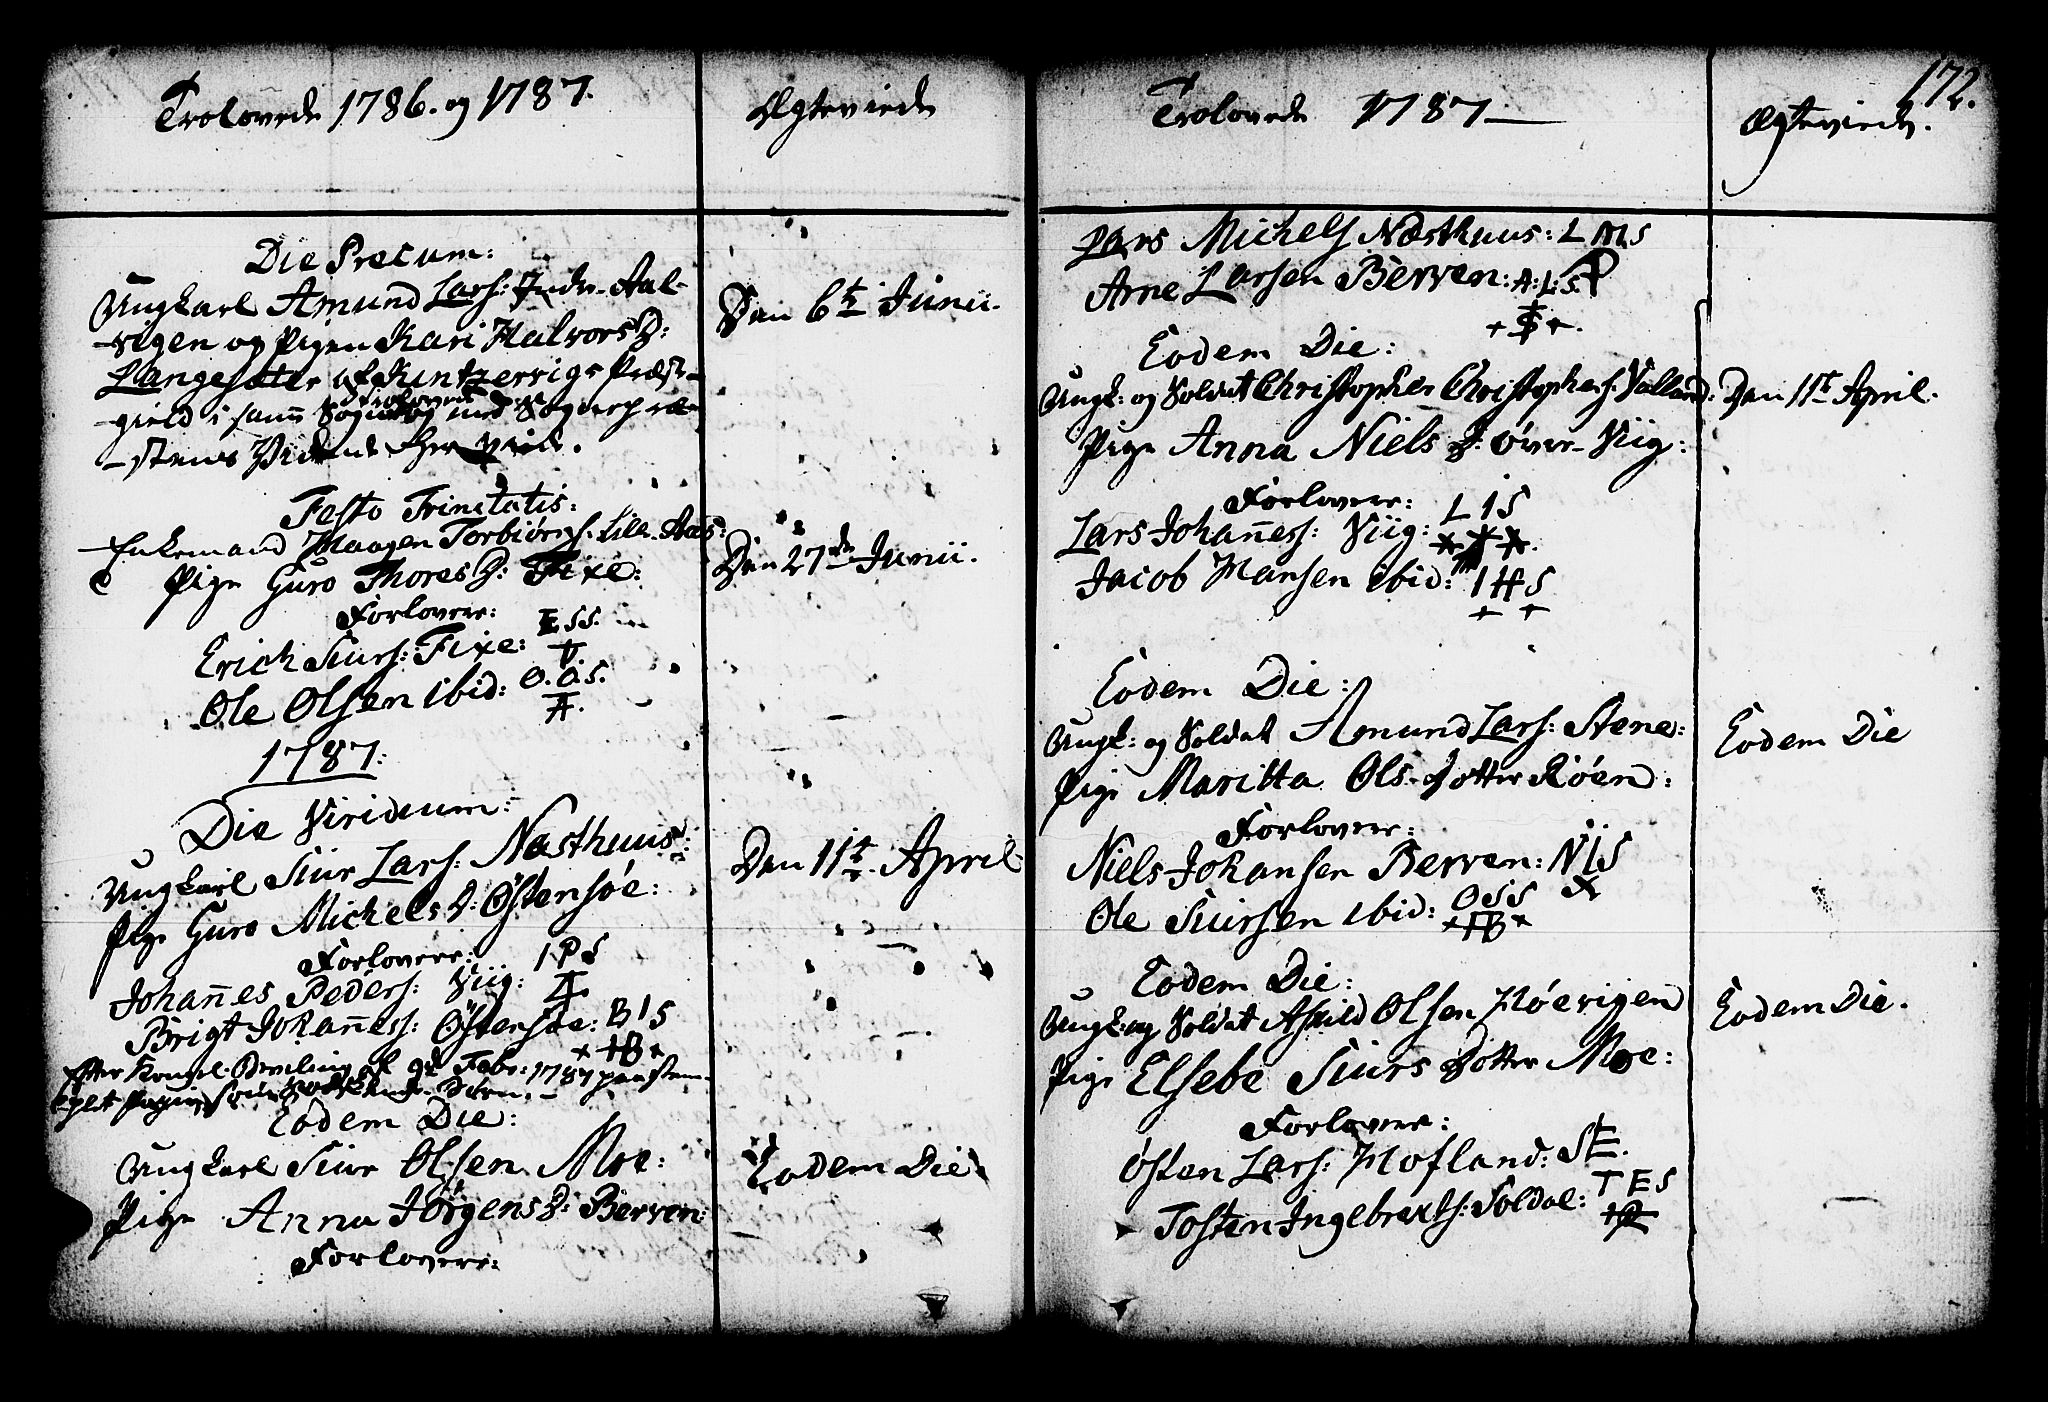 Trolovede 1786. og 1787.
Ægteviede
Die Precum:
Ungkarl Amund Lars: Indr. Aal-
vigen og Pigen Kari Halvors D:
Langesæter af Kintzervigs Præste-
gield i samme Sogn trolovede og med Sognepræ-
stens Vidende her viede.
Den 6te Junii.
Festo Trinitatis:
Enkemand Haagen Torbiørns. Lille-Aas:
Pige Guro Thores D: Fixe:
Forlovere:
Erich Siurs: Fixe: ESS.
Ole Olsen ibid: O.O.S.
Den 27de Junii.
1787.
Die Viridium:
Ungkarl Siur Lars: Næsthuus:
Pige Guro Michels D: Østensøe:
Forlovere:
Johannes Peders: Viig: IPS
Brigt Johanness: Østensøe: BIS
Efter Kongel. Beviling af 9de Febr: 1787 paa stem-
Den 11te April
Eodem Die:
Ungkarl Siur Olsen Moe:
Pige Anna Jørgens D: Berven:
Forlovere:
Eodem Die
172.
Trolovede 1787
Ægteviede.
Lars Michels Næsthuus: LMS
Arne Larsen Berven: A:L:S.
Eodem Die:
Ungk: og Soldat Christopher Christophers. Valland:
Pige Anna Niels D: Øvre-Viig:
Forlovere:
Lars Johanness: Viig: LIS
Jacob Hansen ibid: IHS
Den 11te April.
Eodem Die:
Ungk: og Soldat Amund Lars: Stene:
Pige Maritta Ols-Dotter Røen:
Forlovere:
Niels Johansen Berven: NIS
Ole Siursen ibid: OSS
Eodem Die
Eodem Die:
Ungk: og Soldat Askild Olsen Høevigen
Pige Elsebe Siurs Dotter Moe:
Forlovere:
Østen Lars: Hofland:
Tosten Ingebrexts: Soldal: TES
Eodem Die.